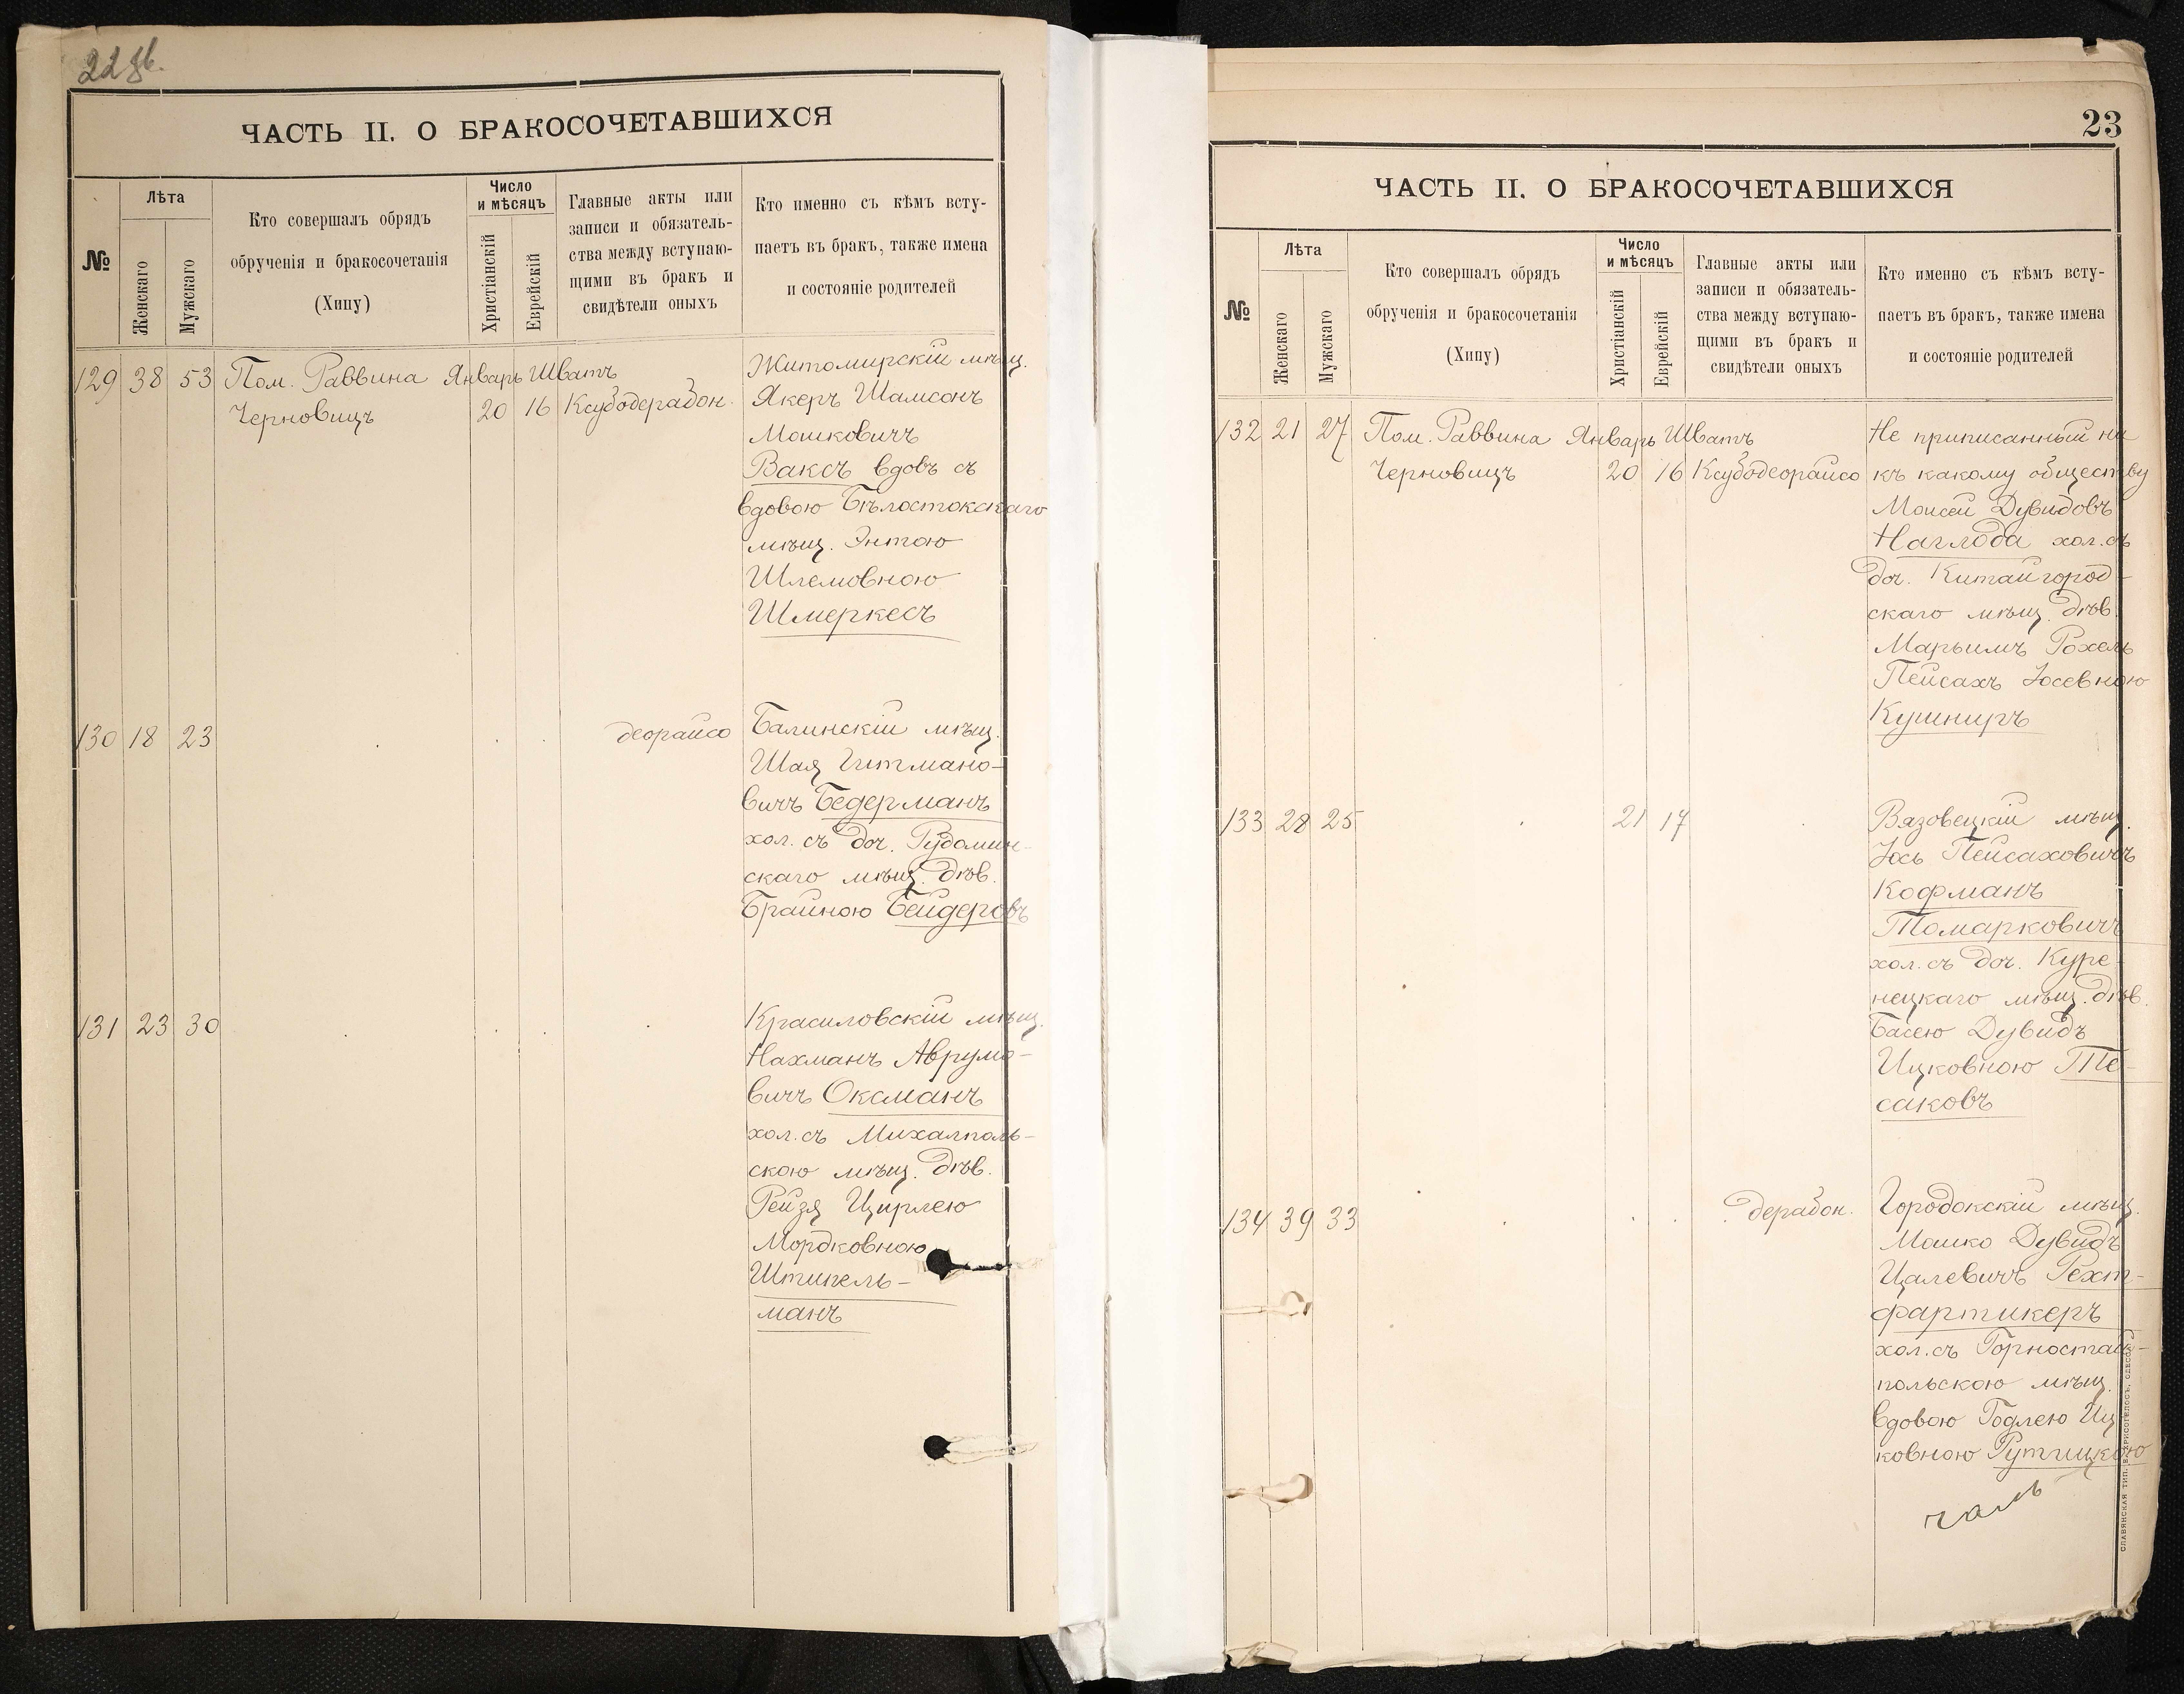 22 об.
ЧАСТЬ II. О БРАКОСОЧЕТАВШИХСЯ
№
Лѣта
Женскаго
Мужскаго
Кто совершалъ обрядъ
обрученія и бракосочетанія
(Хипу)
Число
и мѣсяцъ
Христіанскій
Еврейскій
Главные акты или
записи и обязатель-
ства между вступаю-
щими въ бракъ и
свидѣтели оныхъ
Кто именно съ кѣмъ всту-
паетъ въ бракъ, также имена
и состояніе родителей
129 38 53 Пом. Раввина Январь Шватъ
Черновицъ 20 16 Ксубодерабон.
Житомирскій мѣщ.
Якеръ Шамсонъ
Мошковичъ
Ваксъ вдовъ съ
вдовою Бѣлостокскаго
мѣщ. Энтою
Шлемовною
Шмеркесъ
130 18 23 деорайсо
Балинскій мѣщ.
Шая Гитмано-
вичъ Бедерманъ
хол. съ доч. Рудомин-
скаго мѣщ. дѣв.
Брайною Бейдеровъ
131 23 30
Красиловскій мѣщ.
Нахманъ Аврумо-
вичъ Оксманъ
хол. съ Михалполь-
скою мѣщ. дѣв.
Рейзя Цирлею
Мордковною
Штипель-
манъ
23
ЧАСТЬ II. О БРАКОСОЧЕТАВШИХСЯ
№
Лѣта
Женскаго
Мужскаго
Кто совершалъ обрядъ
обрученія и бракосочетанія
(Хипу)
Число
и мѣсяцъ
Христіанскій
Еврейскій
Главные акты или
записи и обязатель-
ства между вступаю-
щими въ бракъ и
свидѣтели оныхъ
Кто именно съ кѣмъ всту-
паетъ въ бракъ, также имена
и состояніе родителей
132 21 27 Пом. Раввина Январь Шватъ
Черновицъ 20 16 Ксубодеорайсо
Не приписанный ни
къ какому обществу
Моисей Дувидовъ
Наглоба хол. съ
доч. Китайгород-
скаго мѣщ. дѣв.
Марьимъ Рохель
Пейсахъ Іосевною
Кушниръ
133 28 25 21 17
Вязовецкій мѣщ.
Іось Пейсаховичъ
Кофманъ
Томарковичъ
хол. съ доч. Куре-
нецкаго мѣщ. дѣв.
Басею Дувидъ
Ицковною Те-
саковъ
134 39 33 дерабон.
Городокскій мѣщ.
Мошко Дувидъ
Цалевичъ Рехт-
фартикеръ
хол. съ Горностай-
польскою мѣщ.
вдовою Годлею Иц-
ковною Рутицкою
СЛАВЯНСКАЯ ТИП. Е. ХРИСОГЕЛОСЪ, ОДЕССА